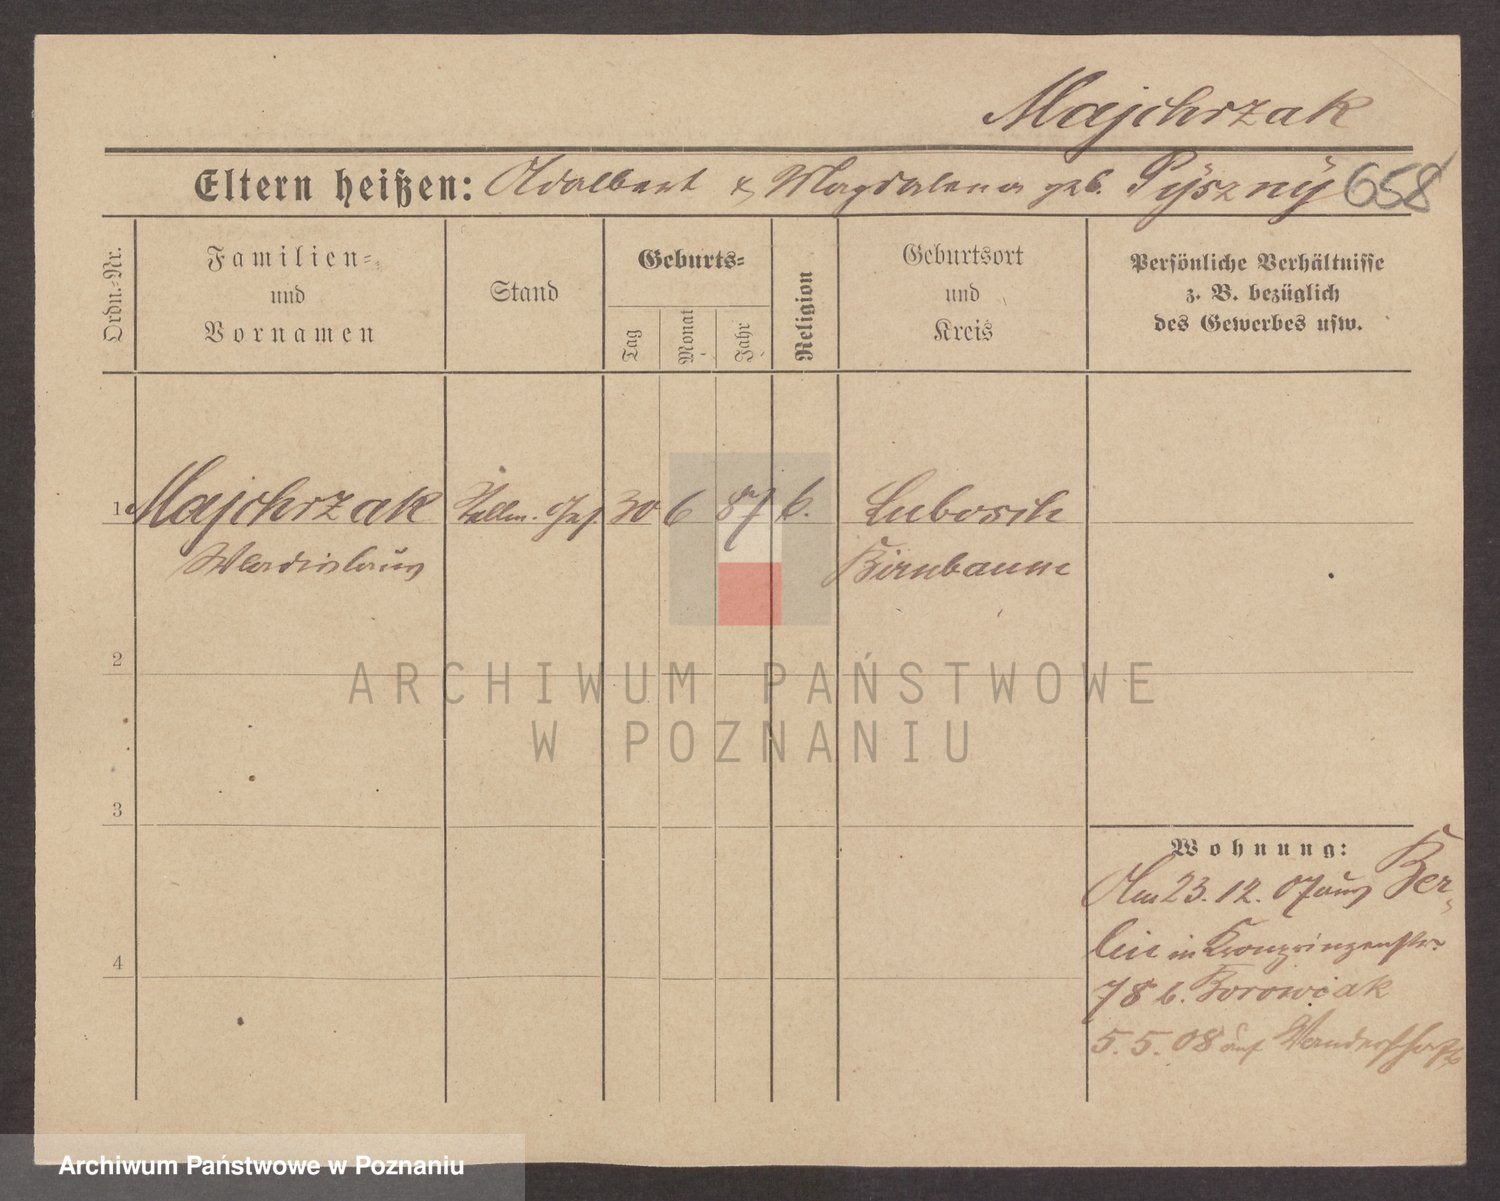 Majchrzak
Eltern heißen: Adalbert & Magdalena geb. Pÿsznÿ 658
Ordn.-Nr.
Familien-
und
Vornamen
Stand
Geburts-
Tag
Monat
Jahr
Religion
Geburtsort
und
Kreis
Persönliche Verhältnisse
z. B. bezüglich
des Gewerbes usw.
1 Majchrzak 30 6 87 k. Lubosch
Wladislaus Birnbaum
2
3
4
Wohnung:
Am 23. 12. 07 aus Ber-
lin in Kronprinzenstr.
78 b. Borowiak
5. 5. 08 auf Wanderschaft
ARCHIWUM PAŃSTWOWE
W POZNANIU
Archiwum Państwowe w Poznaniu